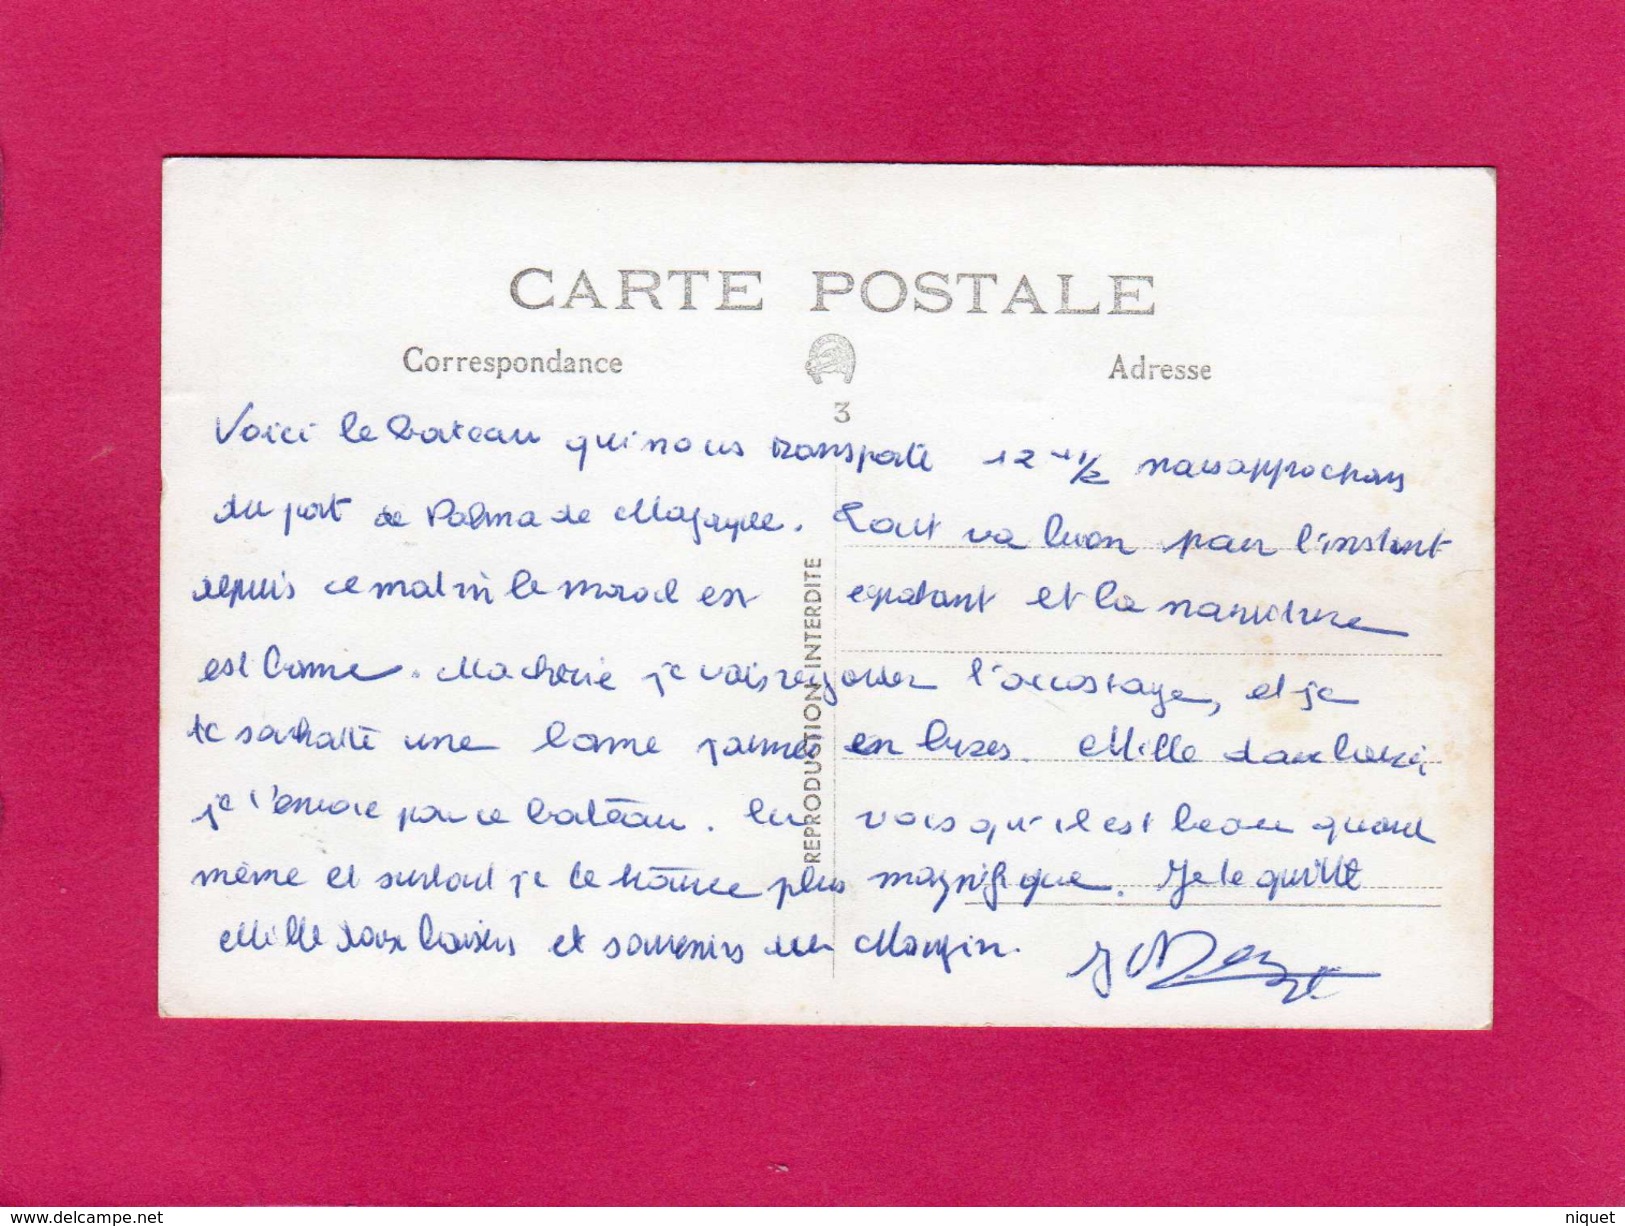 CARTE POSTALE
Correspondance
Adresse
3
REPRODUCTION INTERDITE
Voici le bateau qui nous transporte 12 1/2 nous approchons
du port de Palma de Majorque. Tout va bien pour l'instant
depuis ce matin le moral est épatant et la nourriture
est bonne. Ma chérie je vais regarder l'accostage, et je
te souhaite une bonne journée en Mille doux baisers
je t'envoie ce bateau. vois qu'il est beau quand
même et surtout je le trouve plus magnifique. Je te quitte
Mille doux baisers et souvenirs
www.delcampe.net
niquet